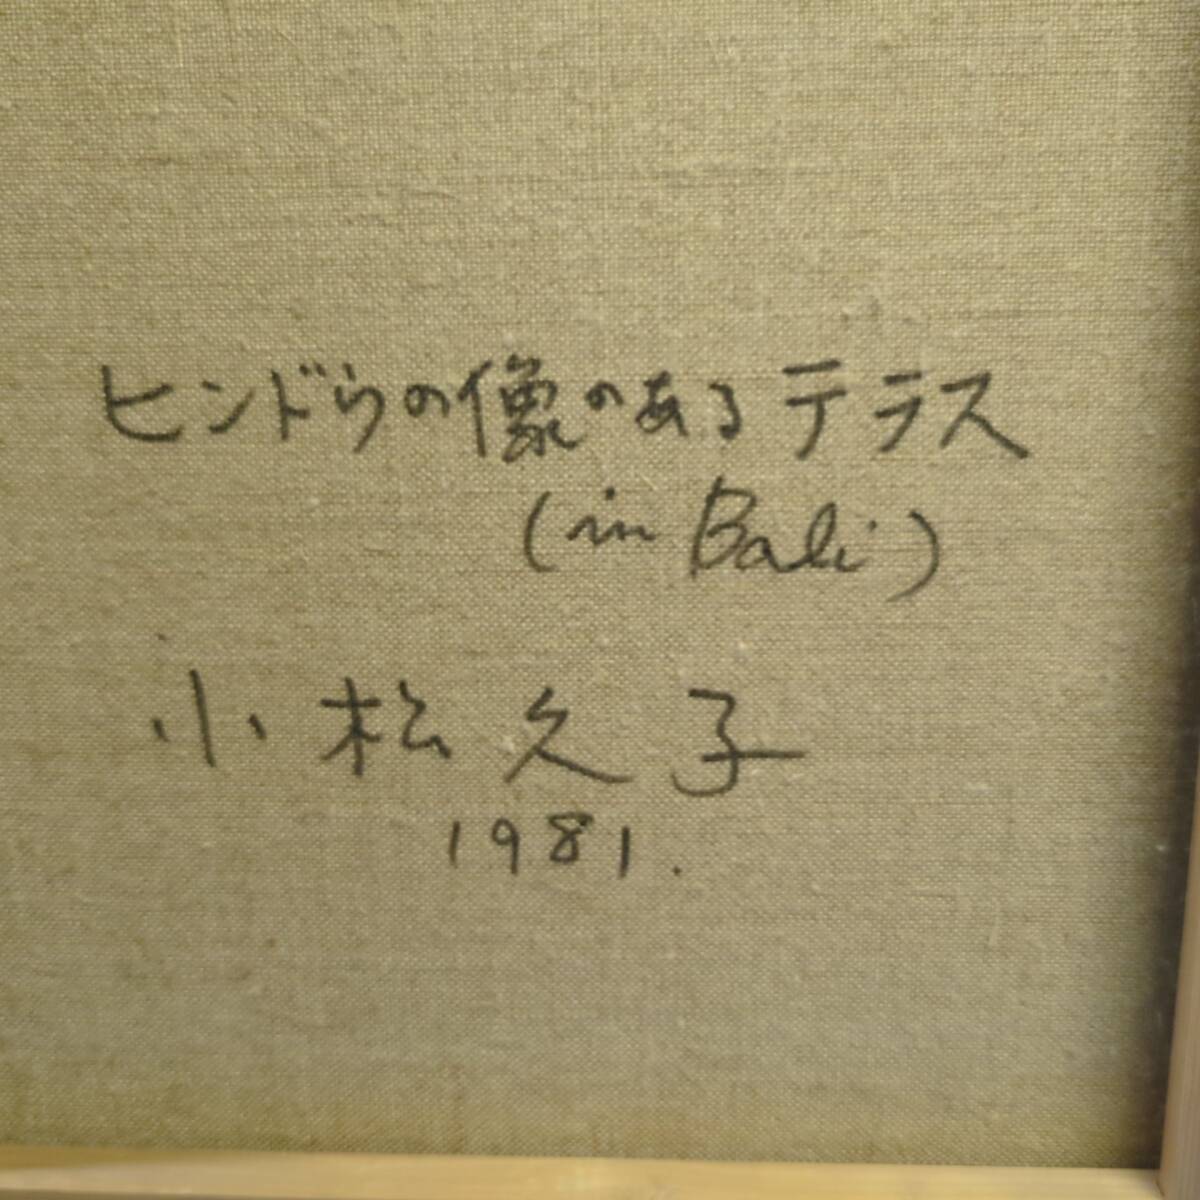 ヒンドゥの像のあるテラス
(in Bali)
小松久子
1981.